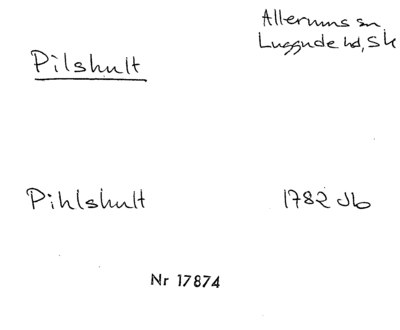 Allerums sn
Luggude hd, Sk
Pilshult
Pihlshult 1782 Jb
Nr 17874